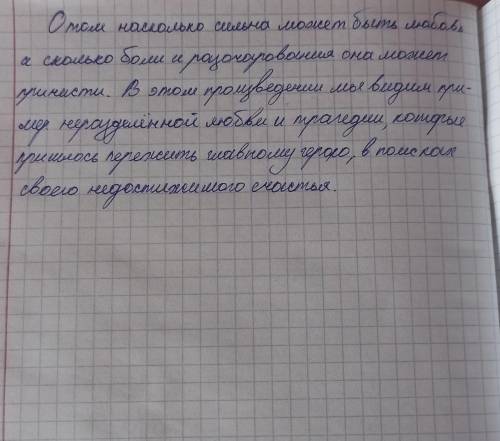 О том насколько сильна может быть любовь,
и сколько боли и разочарования она может
принисти. В этом произведении мы видим при-
мер неразделённой любви и трагедии, которые
пришлось пережить главному герою, в поисках
своего недостижимого счастья.